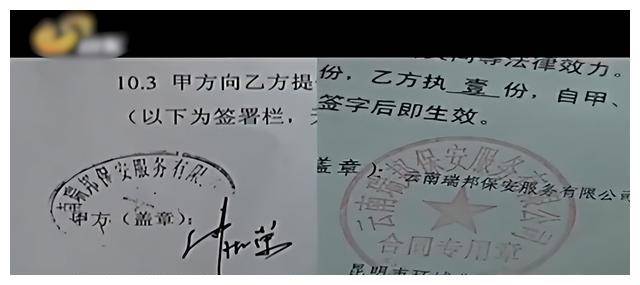 10.3 甲方向乙方提
（以下为签署栏，
南瑞邦保安服务有限
甲方（盖章）：
同等法律效力。
份，乙方执 壹 份，自甲、
签字后即生效。
盖章）：云南瑞邦保安服务有限公司
云南瑞邦保安服务有限公司
合同专用章